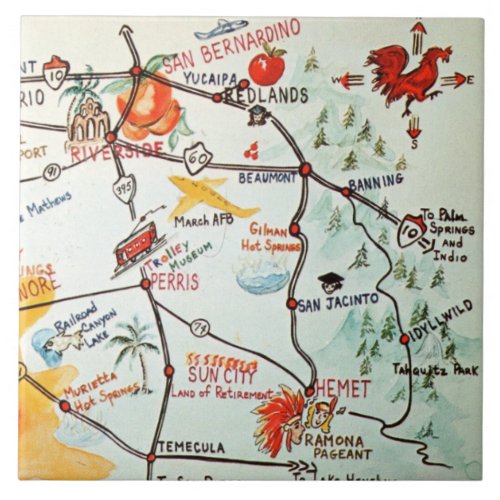 SAN BERNARDINO
YUCAIPA
REDLANDS
NT
10
RIO
W
E
S
RIVERSIDE
PORT
60
91
BEAUMONT
BANNING
395
e Mathews
March AFB
GILMAN
Hot SPRINGS
To Palm
Springs
and
Indio
10
Trolley
Museum
PERRIS
INGS
NORE
SAN JACINTO
IDYLLWILD
Railroad
Canyon
Lake
74
Tahquitz Park
SUN CITY
Land of Retirement
HEMET
Murietta
Hot Springs
RAMONA
PAGEANT
TEMECULA